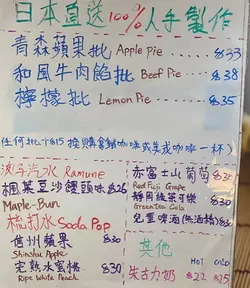 日本直送100%人手製作
青森蘋果批 Apple pie ..... $33
和風牛肉餡批 Beef Pie ..... $38
檸檬批 Lemon Pie ..... $35
任何批 $15 換購 咖啡或美式咖啡一杯)
汽水 Ramune
楓葉豆沙饅頭 $25
Maple-Bun
梳打水 Soda Pop
信州蘋果 $30
Shinshu Apple
完熟水蜜桃 $30
Ripe White Peach
赤富士山葡萄
Red Fuji Grape
靜岡綠茶可樂 $30
Green tea Cola
兒童啤酒(無酒精) $30
其他
HOT COLD
朱古力奶 $22 $25